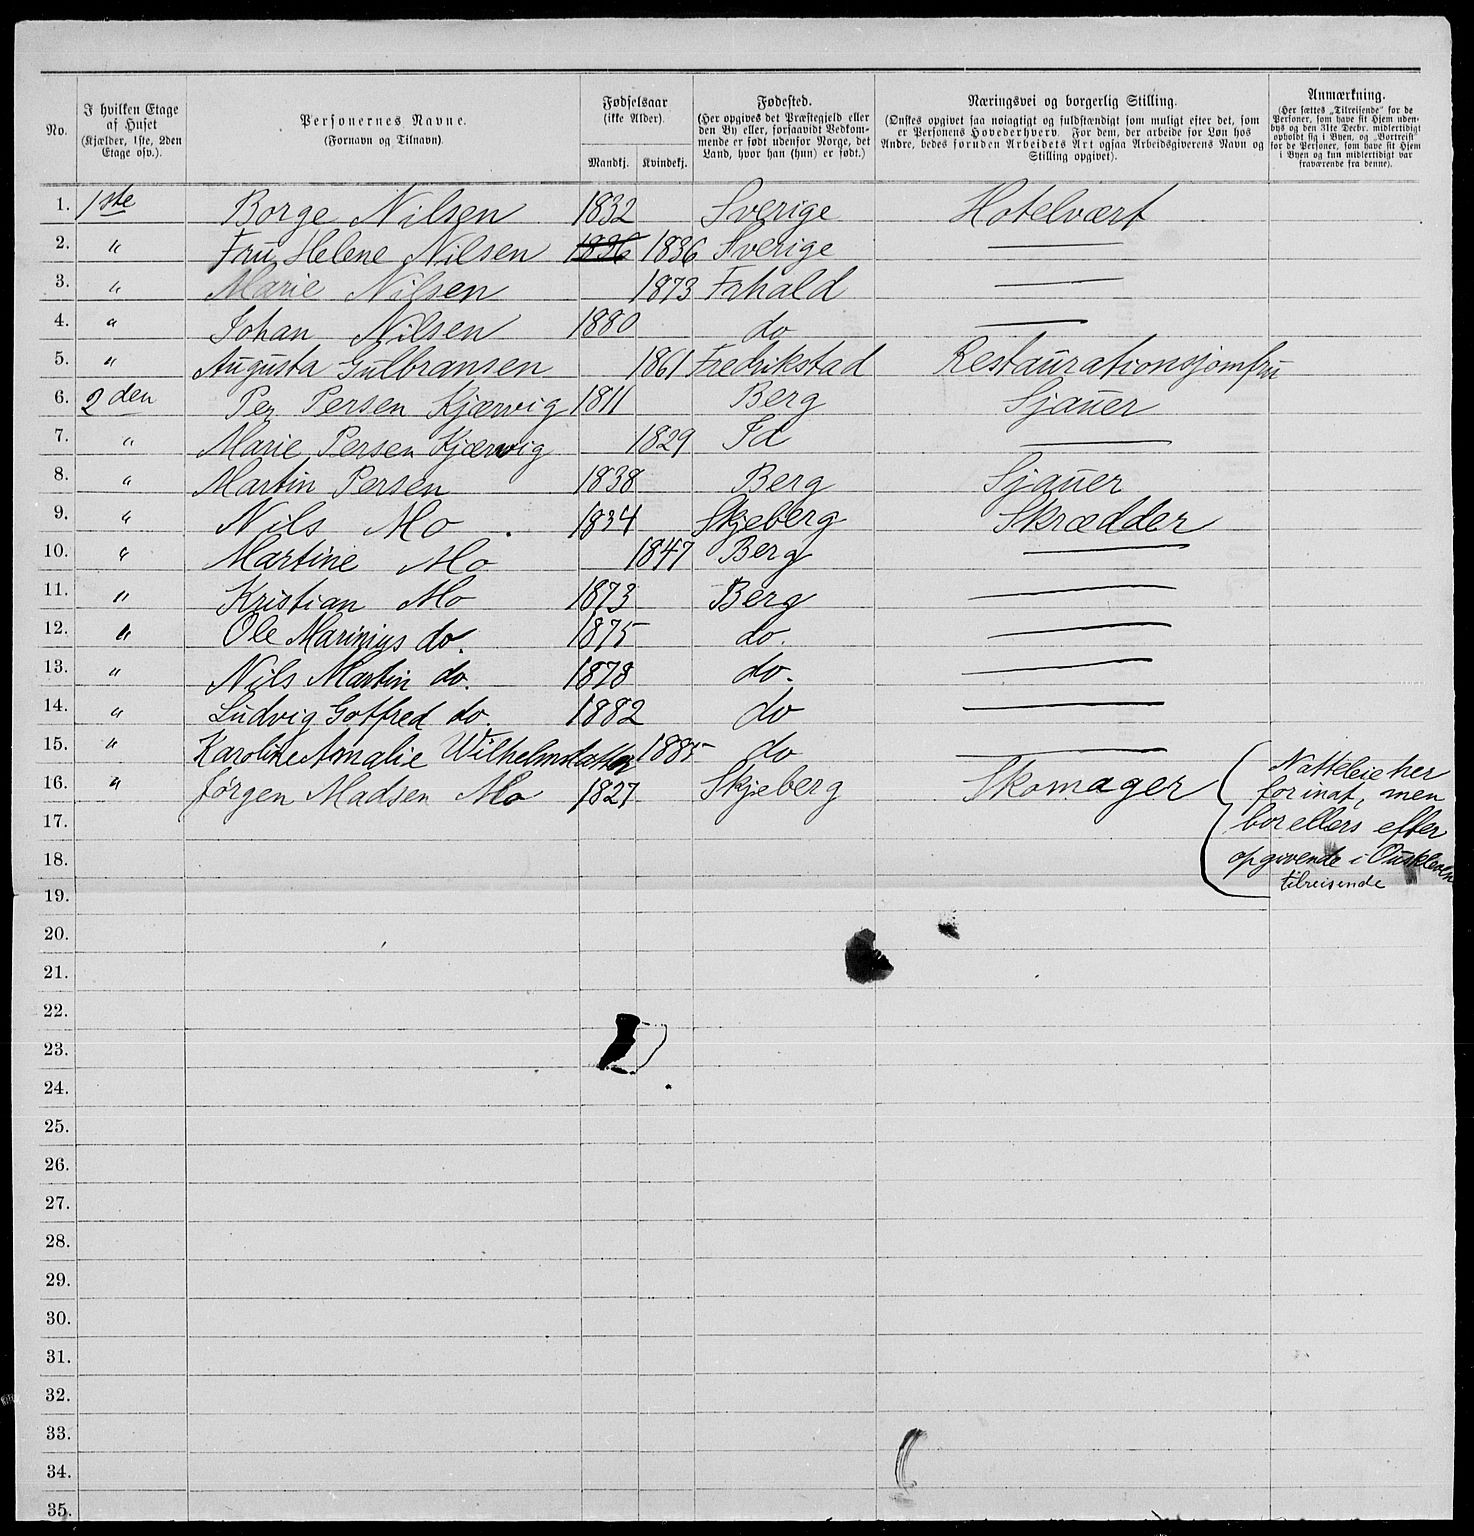 No.
I hvilken Etage af Huset
(Kjælder, 1ste, 2den Etage osv.).
Personernes Navne.
(Fornavn og Tilnavn)
Fødselsaar
(ikke Alder).
Mandkj. Kvindekj.
Fødested.
(Her opgives det Præstegjeld eller
den By eller, forsaavidt Vedkom-
mende er født udenfor Norge, det
Land, hvor han (hun) er født.)
Næringsvei og borgerlig Stilling.
(Ønskes opgivet saa nøiagtigt og fuldstændigt som muligt efter det, som
er Personens Hovederhverv. For dem, der arbeide for Løn hos
Andre, bedes foruden Arbeidets Art ogsaa Arbeidsgiverens Navn og
Stilling opgivet).
Anmærkning.
(Her sættes „Tilreisende“ for de
Personer, som have sit Hjem uden-
bys og den 31te Decbr. midlertidigt
opholdt sig i Byen, og „Bortreist“
for de Personer, som have sit Hjem
i Byen og kun midlertidigt var
fraværende fra denne).
1. 1ste Borge Nilsen 1832 Sverige Hotelvært
2. " Fru Helene Nilsen 1836 1836 Sverige
3. " Marie Nilsen 1873 Frhald
4. " Johan Nilsen 1880 do
5. " Augusta Gulbransen 1861 Fredrikstad Restaurationsjomfru
6. 2den Per Persen Kjærvig 1811 Berg Sjauer
7. " Marie Persen Kjærvig 1829 Id
8. " Martin Persen 1838 Berg Sjauer
9. " Nils Mo 1834 Skjeberg Skrædder
10. " Martine Mo 1847 Berg
11. " Kristian Mo 1873 Berg
12. " Ole Marinius do. 1875 do.
13. " Nils Martin do. 1878 do.
14. " Ludvig Gotfred do. 1882 do
15. " Karoline Amalie Wilhelmdatter 1885 do
16. " Jørgen Madsen Mo 1827 Skjeberg Skomager
Natteleie her
for inat, men
bor ellers efter
opgivende i
tilreisende
17.
18.
19.
20.
21.
22.
23.
24.
25.
26.
27.
28.
29.
30.
31.
32.
33.
34.
35.